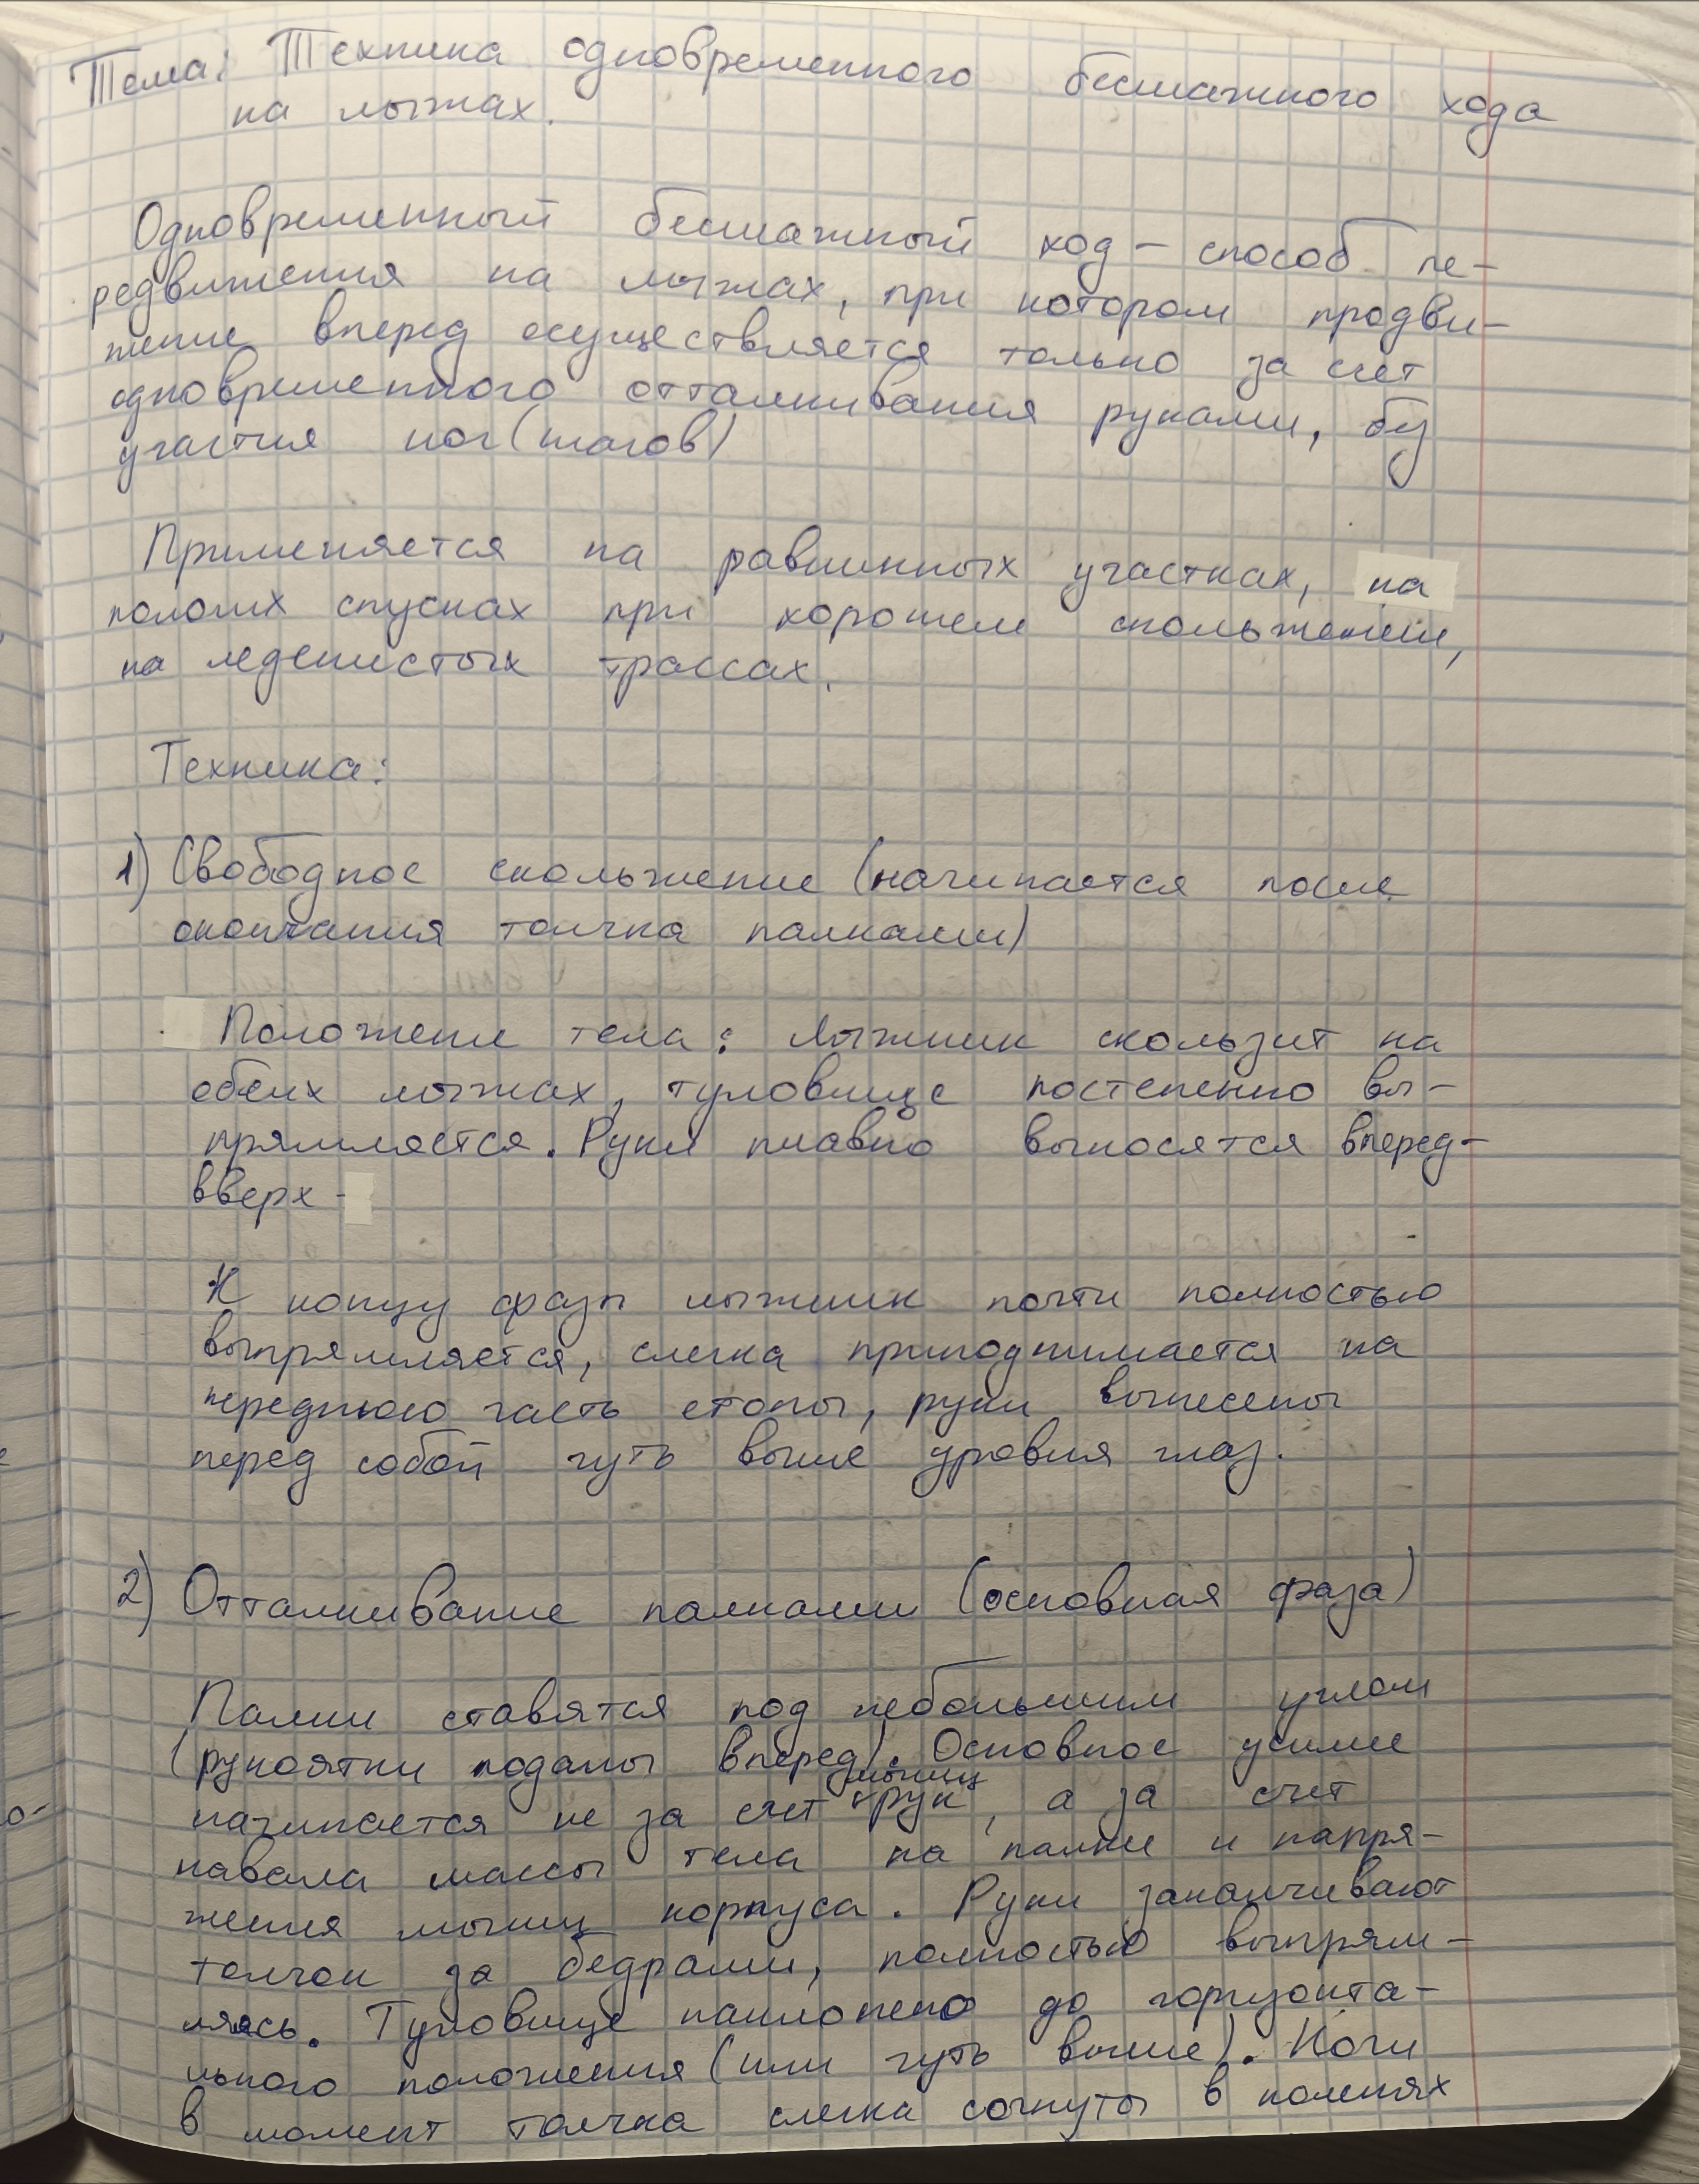 Тема: Техника одновременного бесшажного хода
на лыжах.
Одновременный бесшажный ход – способ пе-
редвижения на лыжах, при котором продви-
жение вперед осуществляется только за счет
одновременного отталкивания руками, без
участия ног (шагов)
Применяется на равнинных участках, на
пологих спусках при хорошем скольжении,
на леденистых трассах.
Техника:
1) Свободное скольжение (начинается после
окончания толчка палками)
Положение тела: лыжник скользит на
обеих лыжах, туловище постепенно вы-
прямляется. Руки плавно выносятся вперед-
вверх -
К концу фазы лыжник почти полностью
выпрямляется, слегка приподнимается на
переднюю часть стопы, руки вынесены
перед собой чуть выше уровня глаз.
2) Отталкивание палками (основная фаза)
Палки ставятся под небольшим углом
(рукоятки поданы вперед). Основное усилие
начинается не за счет мышц рук, а за счет
навала массы тела на палки и напря-
жения мышц корпуса. Руки заканчивают
толчок за бедрами, полностью выпрям-
ляясь. Туловище наклонено до горизонта-
льного положения (или чуть выше). Ноги
в момент толчка слегка согнуты в коленях